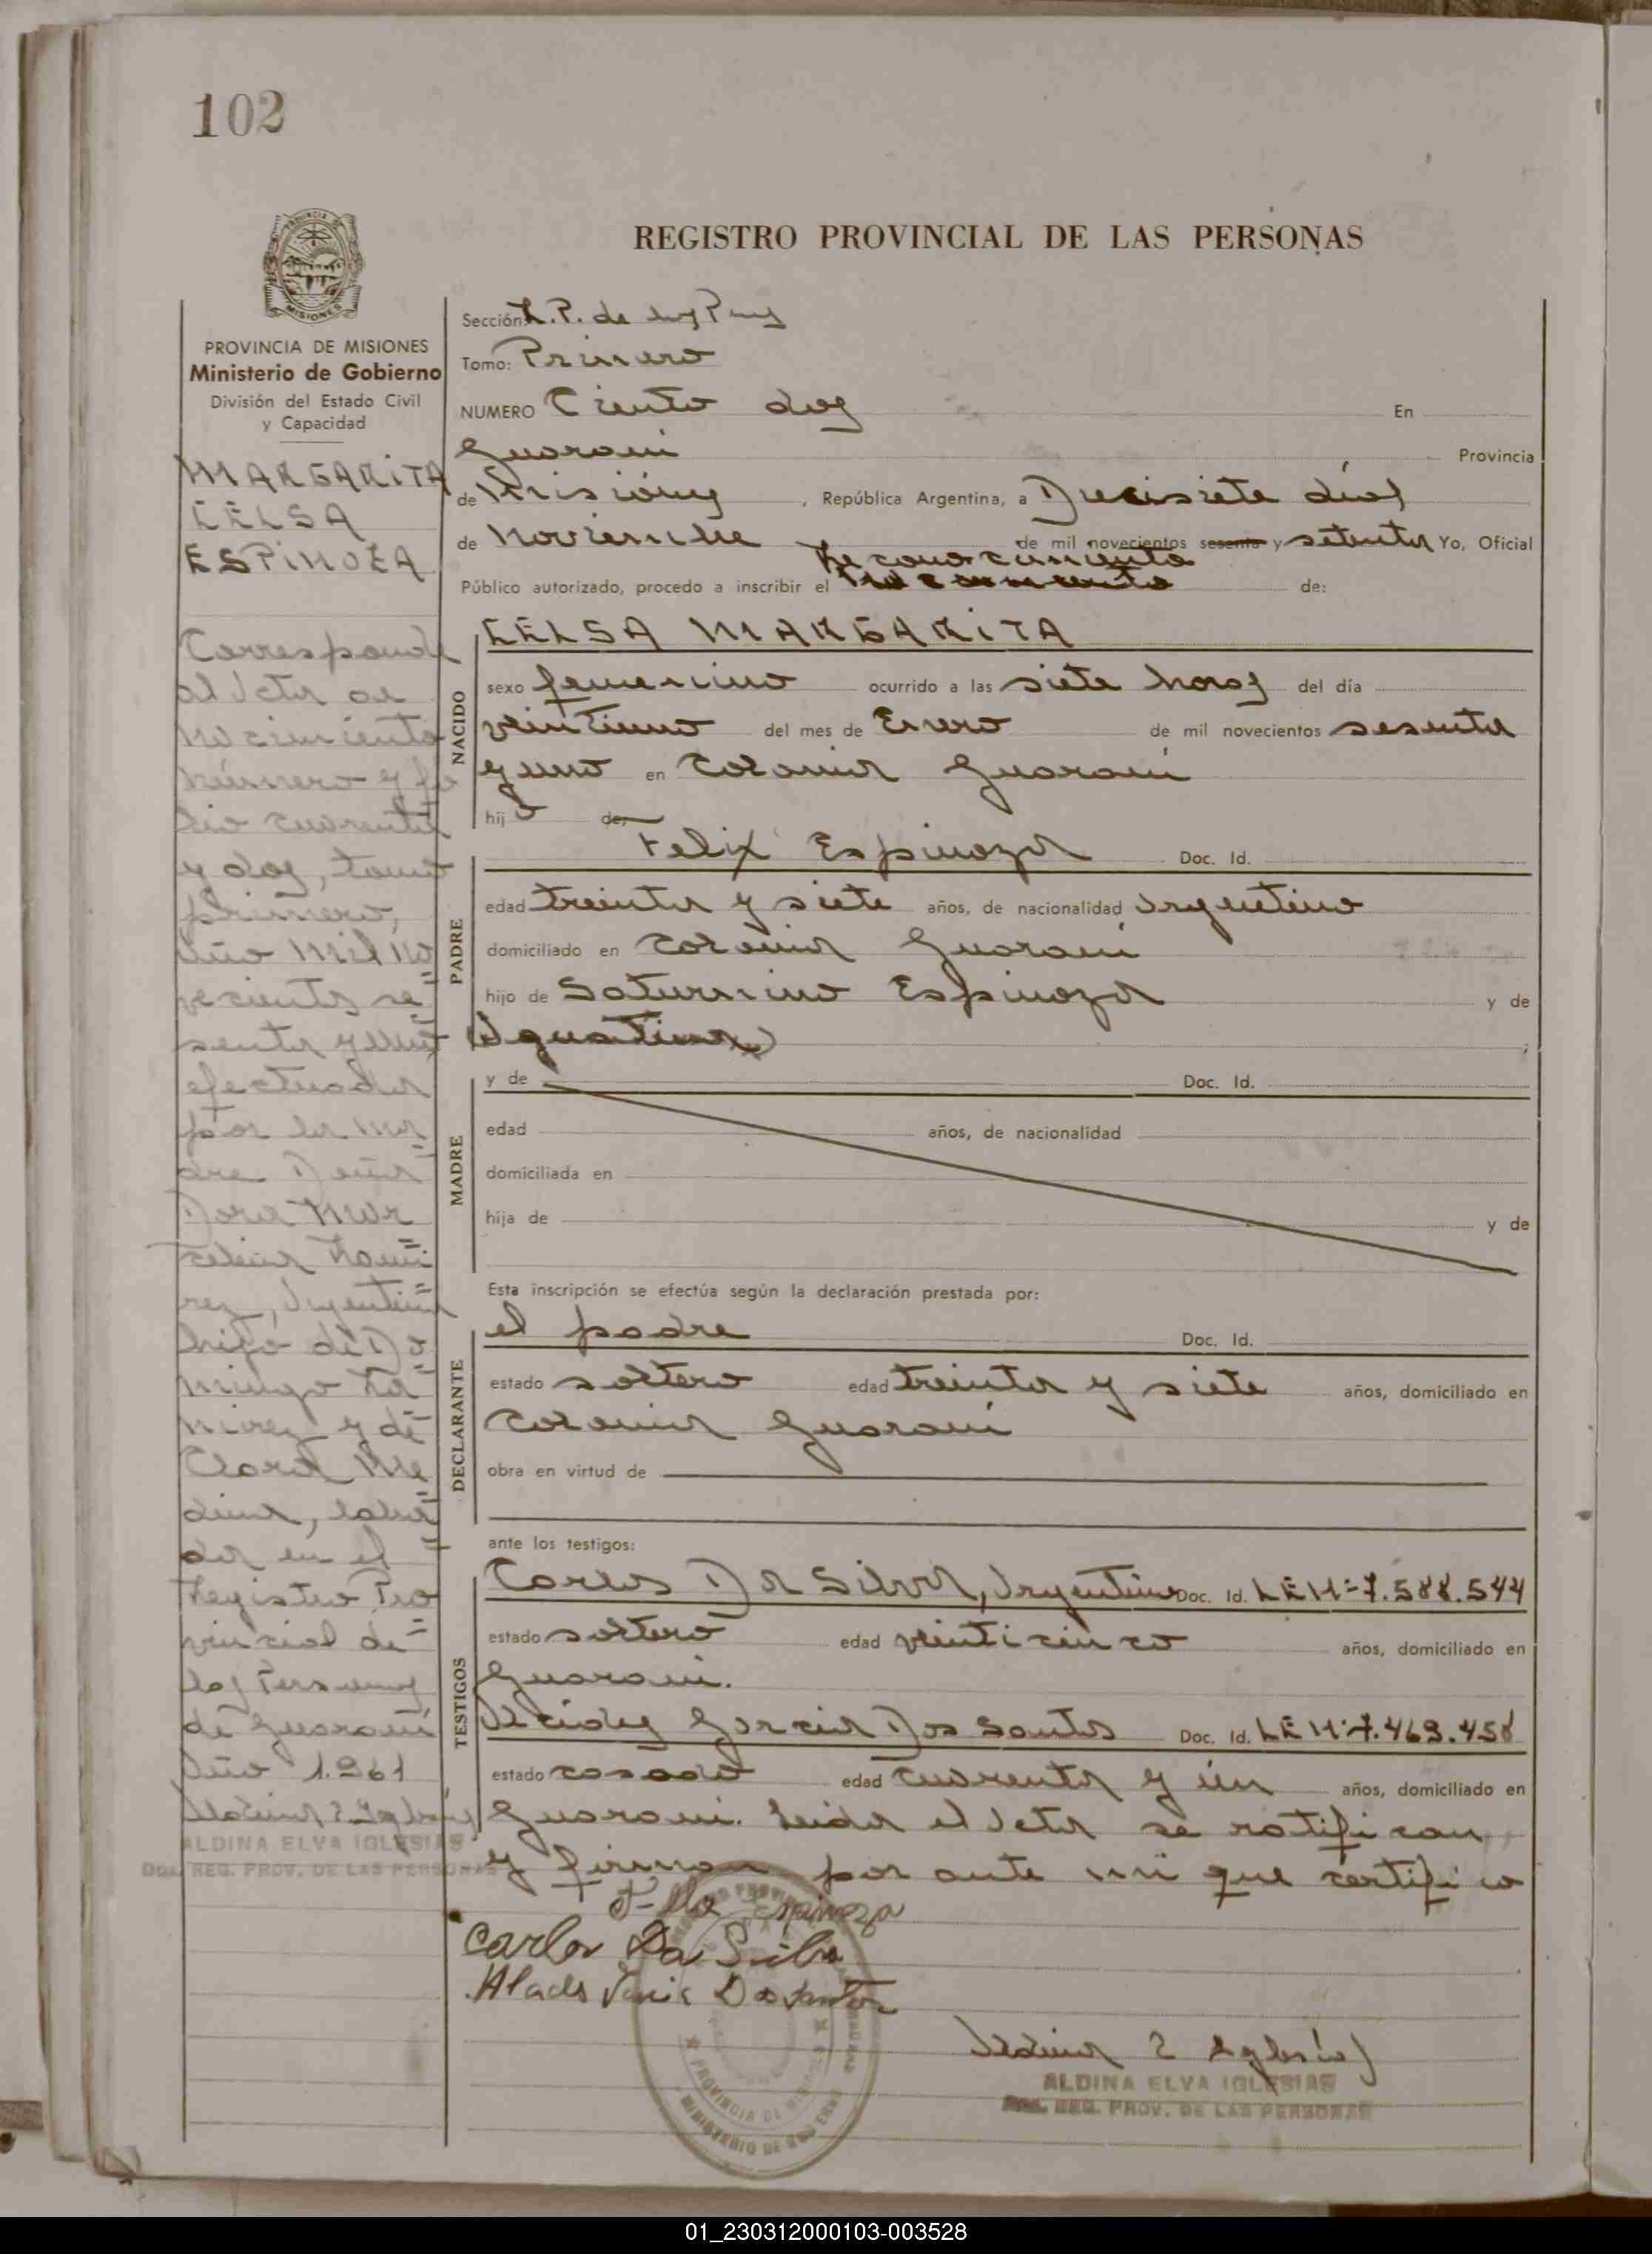 102
REGISTRO PROVINCIAL DE LAS PERSONAS
PROVINCIA DE MISIONES
Ministerio de Gobierno
División del Estado Civil
y Capacidad
MARGARITA
CELSA
ESPINOZA
Corresponde
al Acta de
nacimiento
número y fo
lio cuarenta
y dos, tomo
primero,
Año Mil no
vecientos se
senta y uno
efectuada
por la ma
dre Doña
Dora Mar
celina Rami
rez, Argentina
hija de Do
mingo Ra
mirez y de
Clara Me
dina, labra
da en el
Registro Pro
vincial de
las Personas
de Guaraní
Año 1.961
Aldina E Iglesias
ALDINA ELVA IGLESIAS
REG. PROV. DE LAS PERSONAS
Sección: R.P. de las
Tomo: Primero
NUMERO Ciento dos En
Guarani Provincia
de Misiones, República Argentina, a Diecisiete días
de Noviembre de mil novecientos sesenta y setenta Yo, Oficial
Reconocimiento
Público autorizado, procedo a inscribir el de:
NACIDO
CELSA MARGARITA
sexo femenino ocurrido a las siete horas del día
veintiuno del mes de Enero de mil novecientos sesenta
y uno en Colonia Guaraní
hija de:
PADRE
Felix Espinoza Doc. Id.
edad treinta y siete años, de nacionalidad Argentino
domiciliado en Colonia Guaraní
hijo de Saturnino Espinoza y de
;
MADRE
y de Doc. Id.
edad años, de nacionalidad
domiciliada en
hija de y de
Esta inscripción se efectúa según la declaración prestada por:
DECLARANTE
el padre Doc. Id.
estado soltero edad treinta y siete años, domiciliado en
Colonia Guaraní
obra en virtud de
ante los testigos:
TESTIGOS
Carlos Da Silva, Argentino Doc. Id. LE Nº 7.588.544
estado soltero edad veinticinco años, domiciliado en
Guarani.
Alcides Garcia Dos Santos Doc. Id. LE Nº 7.469.458
estado casado edad cuarenta y un años, domiciliado en
Guarani. Leida el Acta se ratifican
y firman por ante mi que certifico
Espinoza
Carlos Da Silva
Aldina E Iglesias
ALDINA ELVA IGLESIAS
REG. PROV. DE LAS PERSONAS
PROVINCIA DE MISIONES
MINISTERIO DE GOBIERNO
01_230312000103-003528